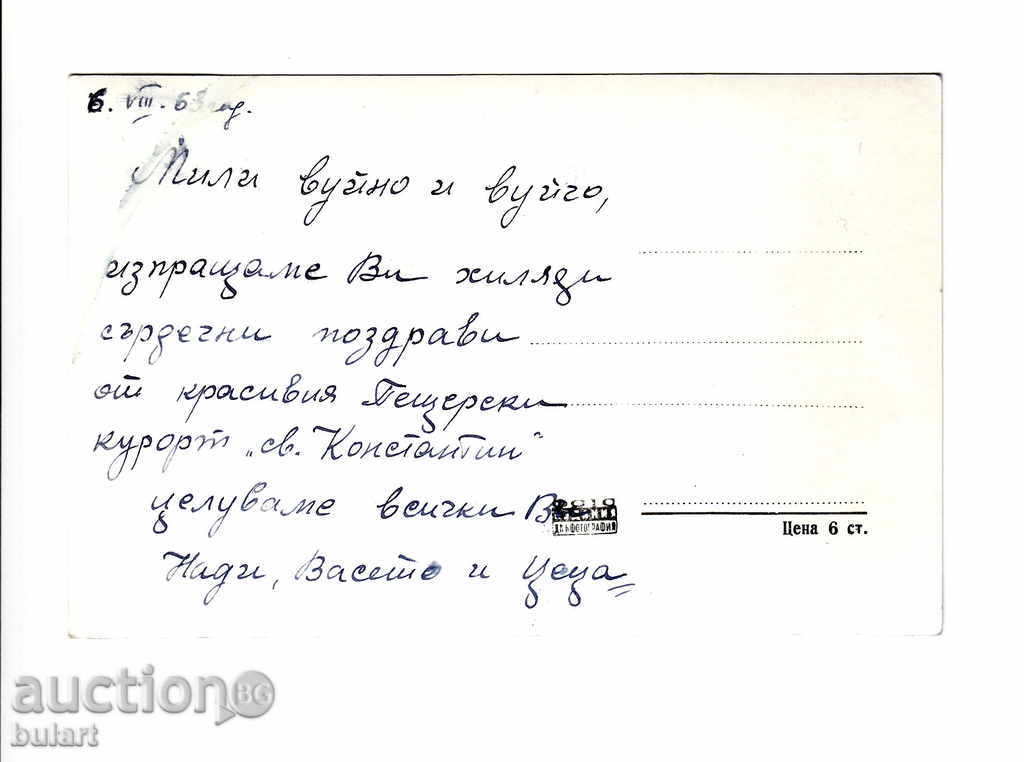 6. VIII. 63 год.
Мили вуйно и вуйчо,
изпращаме Ви хиляди
сърдечни поздрави
от красивия Пещерски
курорт „св. Константин"
целуваме всички Ви
ДП ФОТОГРАФИЯ
Цена 6 ст.
Нади, Васето и Цеца
auction BG
bulart